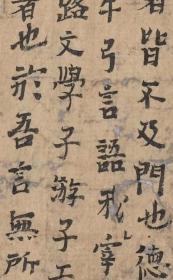 者皆不及門也德
弓言語我宰
路文學子游子
者也於吾言無所